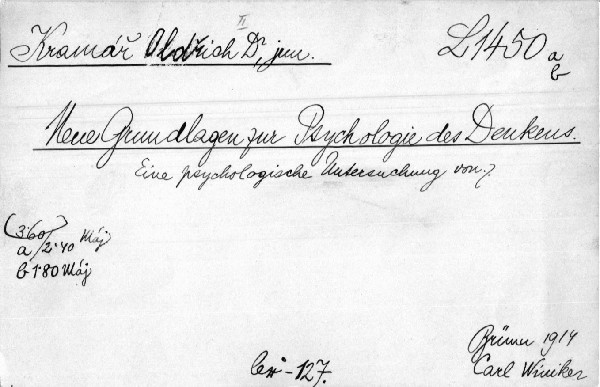 II
Kramář Oldřich Dr, jun.
L1450 a
b
Neue Grundlagen zur Psychologie des Denkens.
Eine psychologische Untersuchung von.
(3·60)
a/2·40 Máj
b 1·80 Máj
Brünn 1914
Carl Winiker
127.